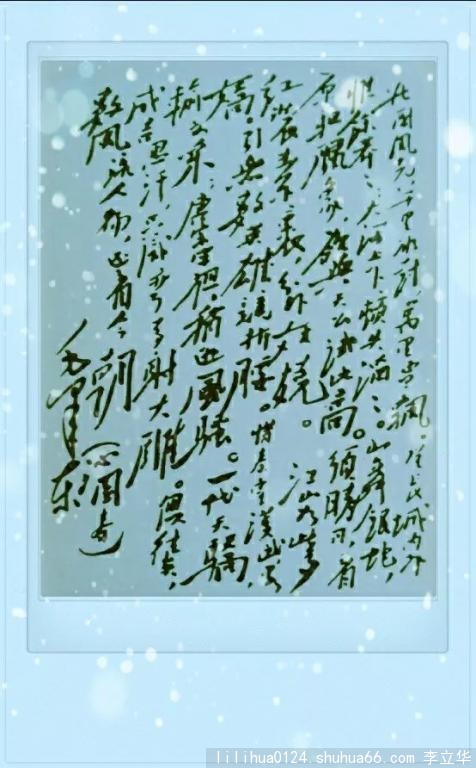 北国风光，千里冰封，万里雪飘。望长城内外，
惟余莽莽；大河上下，顿失滔滔。山舞银蛇，
原驰腊象，欲与天公试比高。须晴日，看
红装素裹，分外妖娆。江山如此多
娇，引无数英雄竞折腰。惜秦皇汉武，略
输文采；唐宗宋祖，稍逊风骚。一代天骄，
成吉思汗，只识弯弓射大雕。俱往矣，
数风流人物，还看今朝（沁园春）
毛泽东
lilihua0124.shuhua66.com 李立华